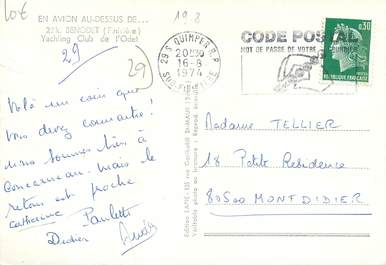 10€
19.8
EN AVION AU-DESSUS DE...
29. BENODET (Finistère)
Yachting Club de l'Odet
29
29
29 S QUIMPER R.P.
20H30
16-8
1974
FINISTERE
CODE POSTAL
MOT DE PASSE DE VOTRE
0,30
REPUBLIQUE FRANCAISE
Voilà un coin que
vous devez connaître!
nous sommes hier à
Concarneau. mais le
retour est proche
Catherine Paulette
Didier André
Madame TELLIER
18 Petite Résidence
80500 MONTDIDIER
Edition LAPIE - 125 rue Garibaldi St-MAUR
Véritable photo au bromure - Reprod. interdite